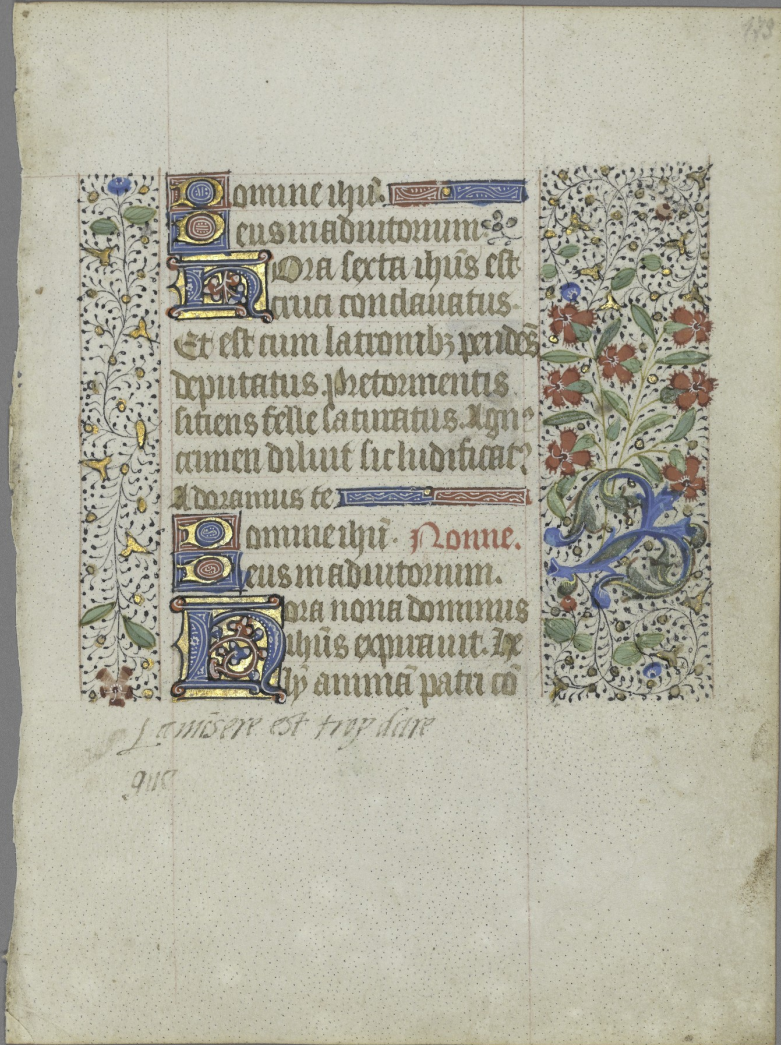 173
Domine ihũ.
Deus in adiutorium
Hora sexta ihũs est
cruci conclauatus.
Et est cum latronibꝫ pendẽs
deputatus. Pre tormentis
sitiens felle saturatus. Agnꝰ
crimen diluit sic ludificatꝰ
Adoramus te
Domine ihũ. Nonne.
Deus in adiutorium.
Hora nona dominus
ihũs expirauit. Hely
animã patri cõ
La misere est trop dere
que